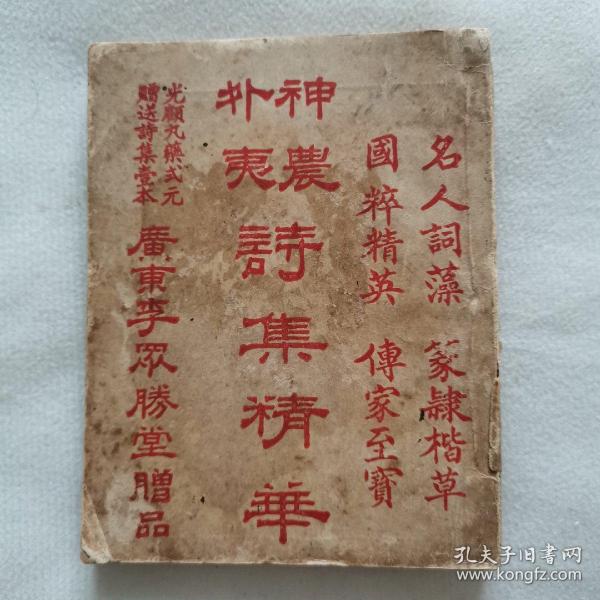 名人詞藻 篆隸楷草
國粹精英 傳家至寶
神農
外夷
詩集精華
光顧丸藥弍元
贈送詩集壹本
廣東李眾勝堂贈品
孔夫子旧书网
www.kongfz.com